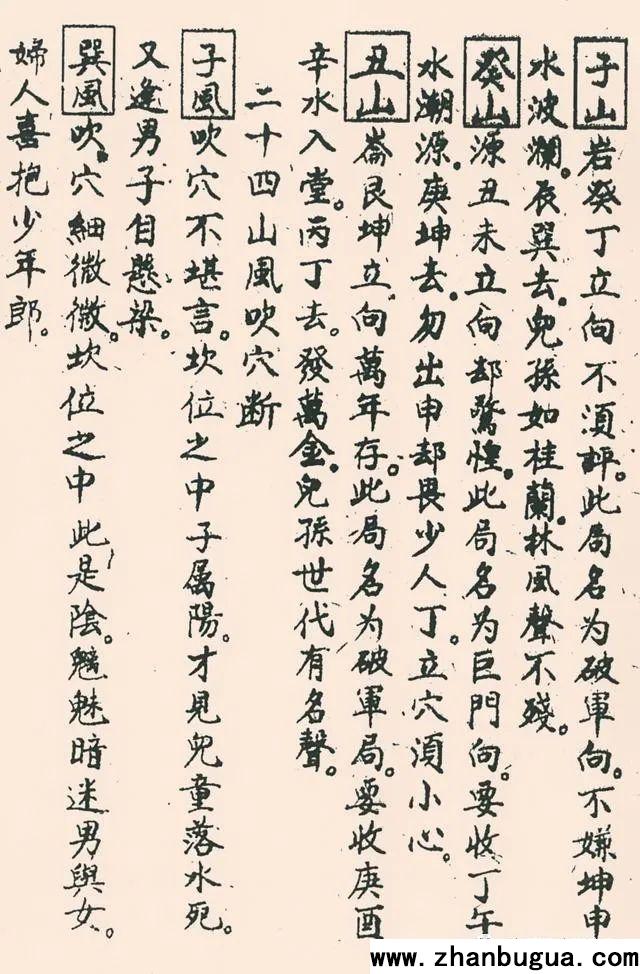 子山岩癸丁立向不須評。此局名为破軍向。不嫌坤申
水波瀾。辰巽去。兒孫如桂蘭。林風聲不殘。
癸山源丑未立向却驚惶。此局名为巨門向。要收丁午
水潮源。庚坤去。勿出申却畏少人丁。立穴須小心。
丑山崙艮坤立向萬年存。此局名为破軍局。要收庚酉
辛水入堂。丙丁去。發萬金。兒孫世代有名聲。
二十四山風吹穴断
子風吹穴不堪言。坎位之中子属陽。才見兒童落水死。
又逢男子自懸梁。
巽風吹穴細微微。坎位之中此是陰。魑魅暗迷男與女。
婦人喜抱少年郎。
www.zhanbugua.com